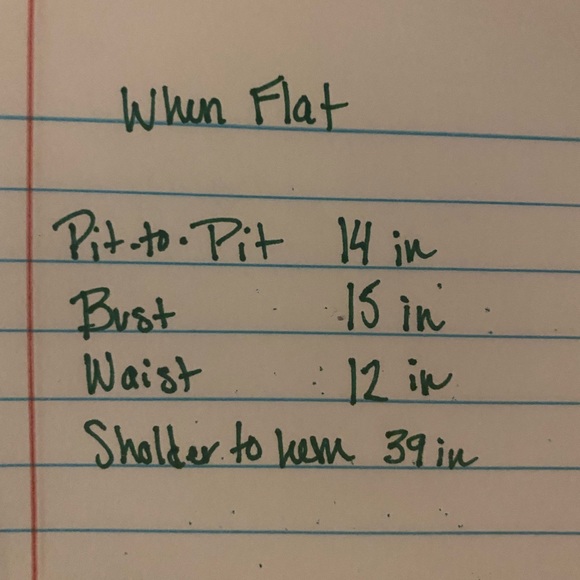 When Flat
Pit-to-Pit 14 in
Bust 15 in
Waist 12 in
Sholder to hem 39 in